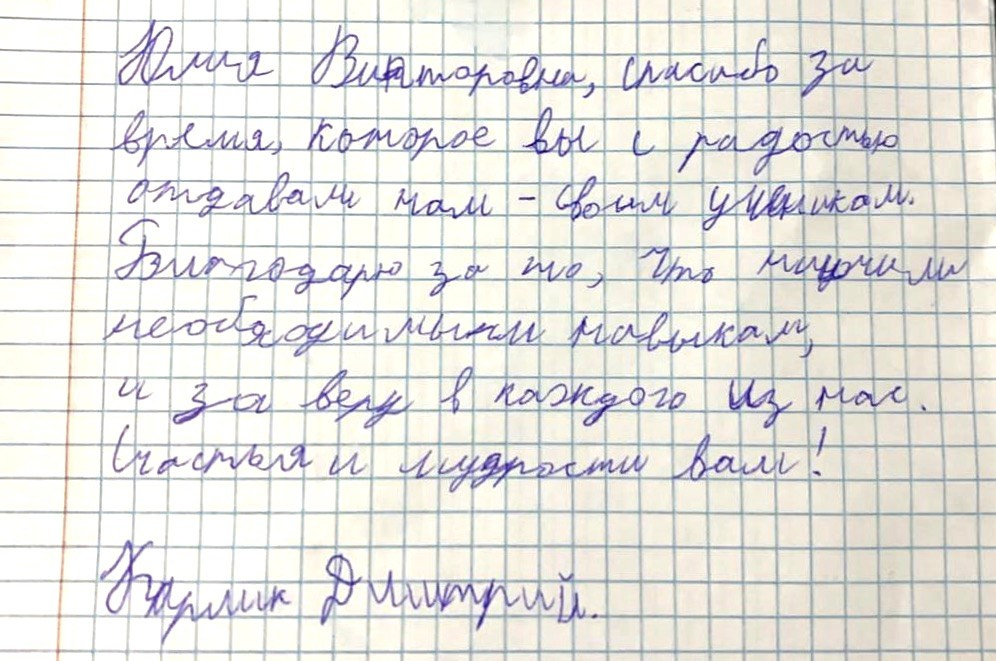 Юлия Викторовна, спасибо за
время, которое вы с радостью
отдавали нам - своим ученикам.
Благодарю за то, что научили
необходимым навыкам,
и за веру в каждого из нас.
Счастья и мудрости вам!
Карлик Дмитрий.